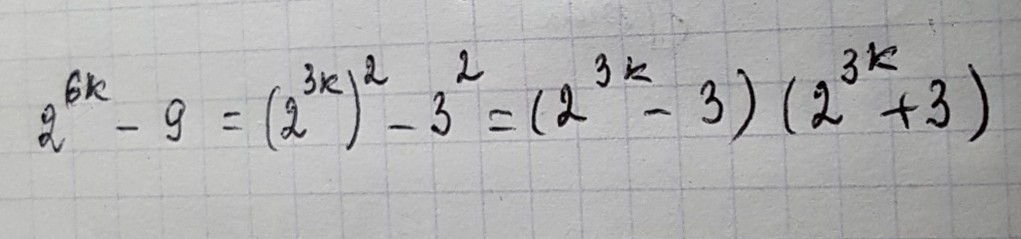 2^{6k} - 9 = (2^{3k})^2 - 3^2 = (2^{3k} - 3)(2^{3k} + 3)